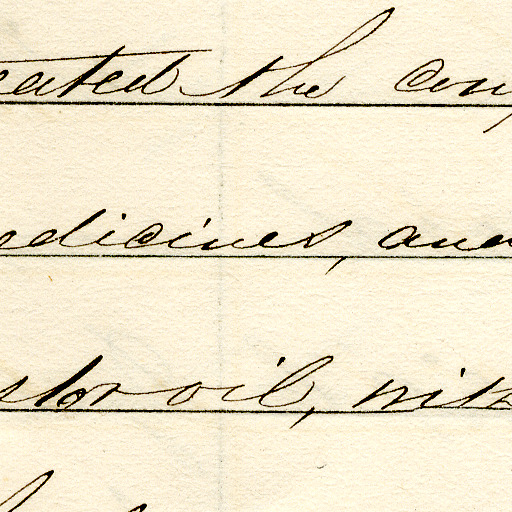 eated the com
edicines, and
stor oil, with